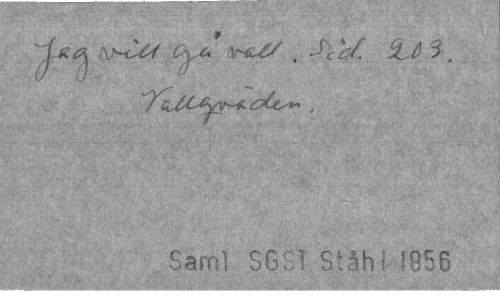 Jag vill gå vall. Sid. 203.
Vallqväden.
Saml SGST Ståhl 1856